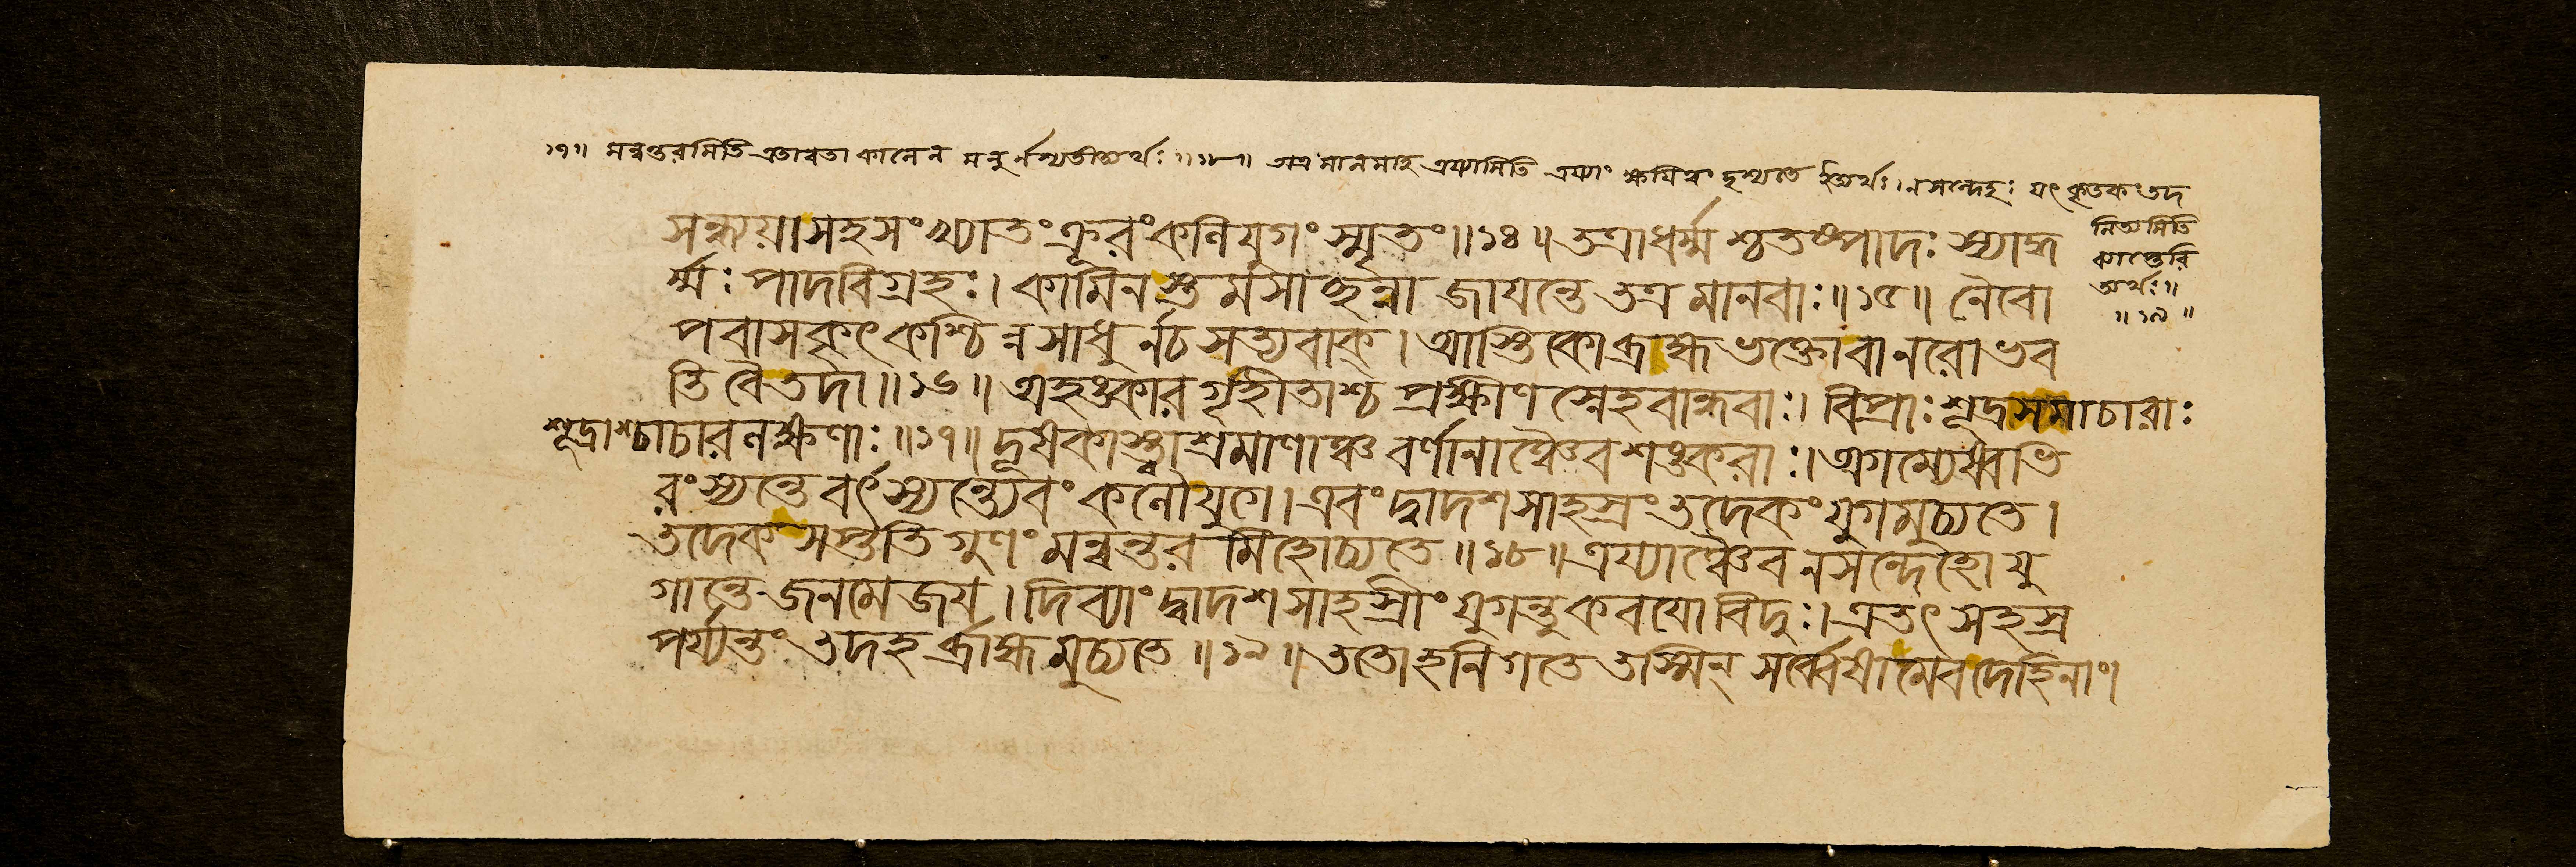 ১৭॥ মন্বন্তরমিতি এতাবতা কালেন মনুর্নশ্যতীত্যর্থঃ ॥১৮॥ অত্র মানমাহ এষামিতি এষাং ক্ষয়িত্বং দৃশ্যতে ইত্যর্থঃ। নসন্দেহঃ যৎ কৃতকং তদ
নিত্যমিতি
ব্যাপ্তেরি
ত্যর্থঃ॥
॥১৯॥
সন্ধ্যয়া সহ সংখ্যাতং ক্রূরং কলিযুগং স্মৃতং॥১৪॥ তত্রাধর্ম্মশ্চতুষ্পাদঃ স্যাদ্ধ
র্ম্মঃ পাদবিগ্রহঃ। কামিনস্তমসাচ্ছন্না জায়ন্তে তত্র মানবাঃ॥১৫॥ নৈবো
পবাসকৃৎ কশ্চিন্ন সাধুর্নচ সত্যবাক্। আস্তিকো ব্রাহ্মভক্তোবা নরো ভব
তি বৈ তদা॥১৬॥ অহঙ্কারগৃহীতাশ্চ প্রক্ষীণস্নেহবান্ধবাঃ। বিপ্রাঃ শূদ্রসমাচারাঃ
শূদ্রাশ্চাচারলক্ষণাঃ॥১৭॥ দূষকাস্ত্বাশ্রমাণাঞ্চ বর্ণানাঞ্চৈব শঙ্করাঃ। অগম্যেষ্বভি
রংস্যন্তে বর্ৎস্যন্ত্যেবং কলৌযুগে। এবং দ্বাদশসাহস্রং তদেকং যুগমুচ্যতে।
তদেকসপ্ততিগুণং মন্বন্তরমিহোচ্যতে॥১৮॥ এষাঞ্চৈব নসন্দেহো যু
গান্তে জনমেজয়। দিব্যাং দ্বাদশসাহস্রীং যুগন্তু কবয়ো বিদুঃ। এতৎ সহস্র
পর্য্যন্তং তদহর্ব্রাহ্মমুচ্যতে॥১৯॥ ততোহনি গতে তস্মিন্ সর্ব্বেষামেব দেহিনাং।